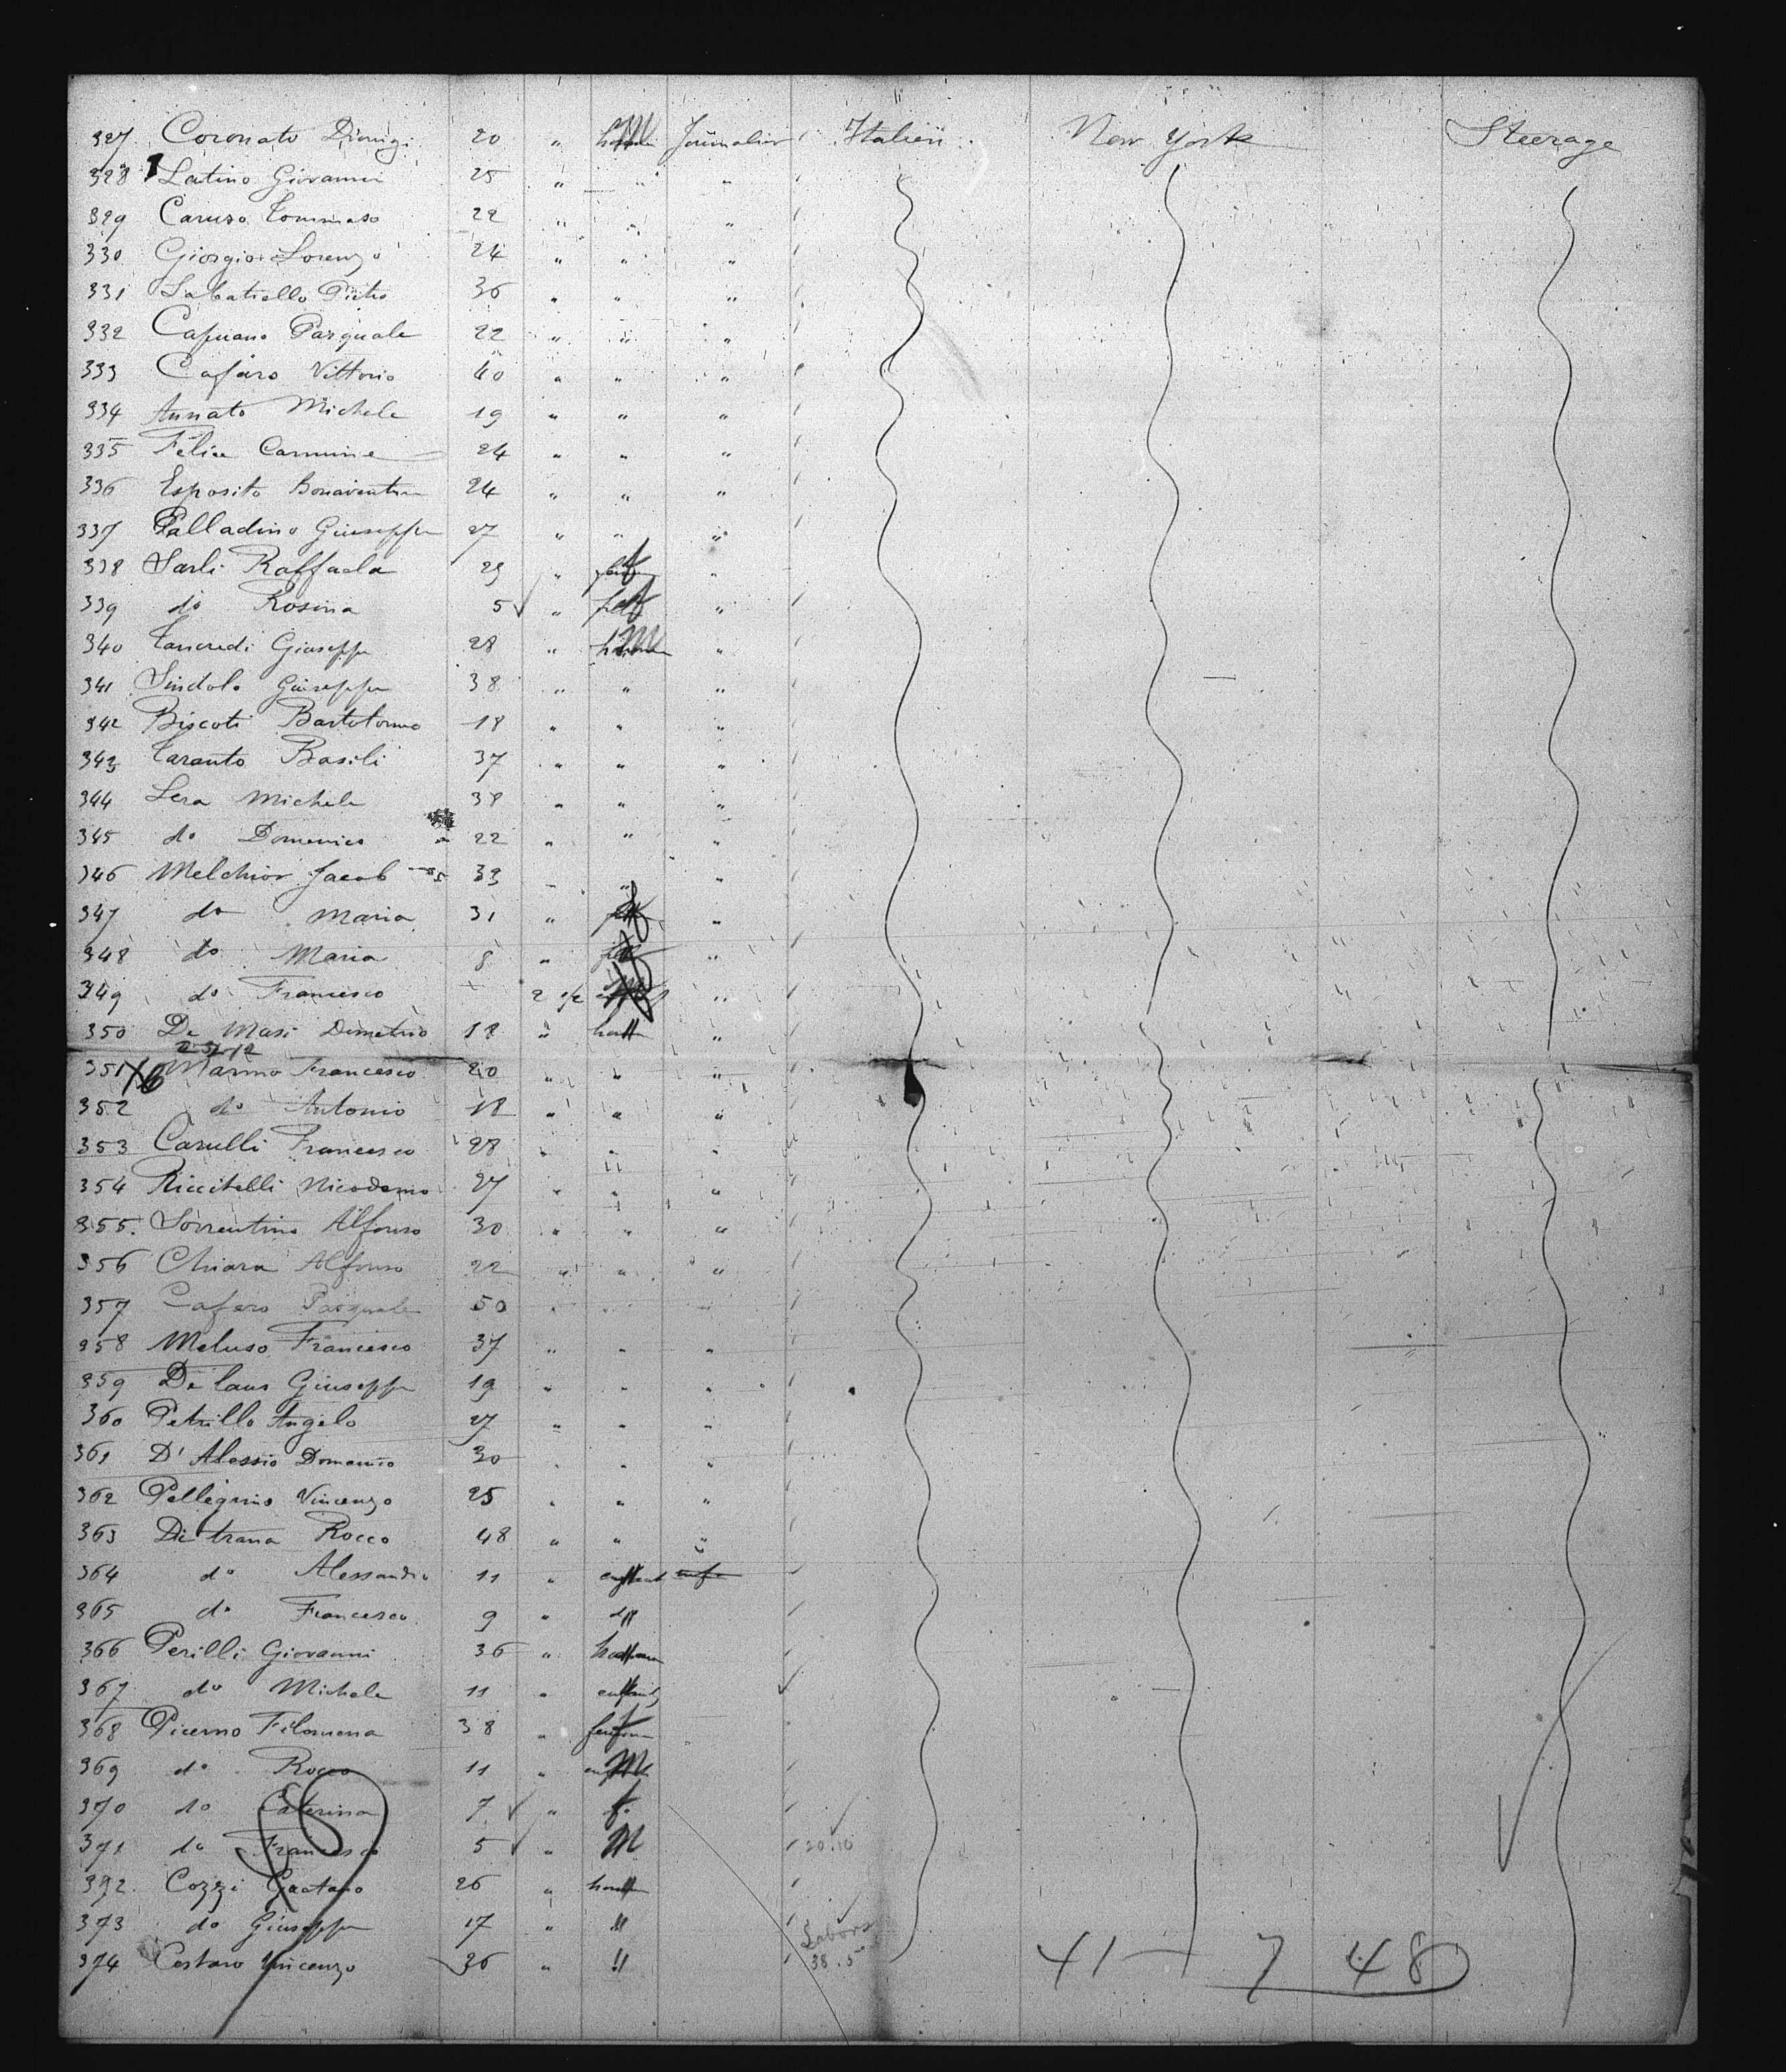 327 Coronato Dionigi 20 " M Journalier Italien New York Steerage
328 Latino Giovanni 25 " " "
329 Caruso Tommaso 22 " " "
330 Giorgio Lorenzo 24 " " "
331 Sabatiello Pietro 36 " " "
332 Capuano Pasquale 22 " " "
333 Cafaro Vittorio 40 " " "
334 Annato Michele 19 " " "
335 Felice Carmine 24 " " "
336 Esposito Bonaventura 24 " " "
337 Palladino Giuseppe 27 " " "
338 Sarli Raffaela 29 " f "
339 do Rosina 5 " f "
340 Tancredi Giuseppe 28 " M "
341 Sindolo Giuseppe 38 " " "
342 Biscoti Bartolomeo 18 " " "
343 Taranto Basili 37 " " "
344 Lera Michele 38 " " "
345 do Domenico 22 " " "
346 Melchior Jacob 33 " " "
347 do Maria 31 " f "
348 do Maria 8 " f "
349 do Francesco "
350 De Masi Demetrio 18 " "
351 Marino Francesco 20 " " "
352 do Antonio 18 " " "
353 Carulli Francesco 28 " " "
354 Riccitelli Nicodemo 27 " " "
355 Sorrentino Alfonso 30 " " "
356 Chiara Alfonso 22 " " "
357 Cafaro Pasquale 50 " " "
358 Meluso Francesco 37 " " "
359 De Giuseppe 19 " " "
360 Petrillo Angelo 27 " " "
361 D'Alessio Domenico 30 " " "
362 Pellegrino Vincenzo 25 " " "
363 Di trana Rocco 48 " " "
364 do Alessandro 11 "
365 do Francesco 9 "
366 Perilli Giovanni 36 "
367 do Michele 11 "
368 Picerno Filomena 38 " f
369 do Rocco 11 " M
370 do Caterina 7 " f.
371 do Francesco 5 " M 20.10
372 Cozzi Gaetano 26 "
373 do Giuseppe 17 " "
374 Cestaro Vincenzo 36 " " Labors 38.5 41 7 48